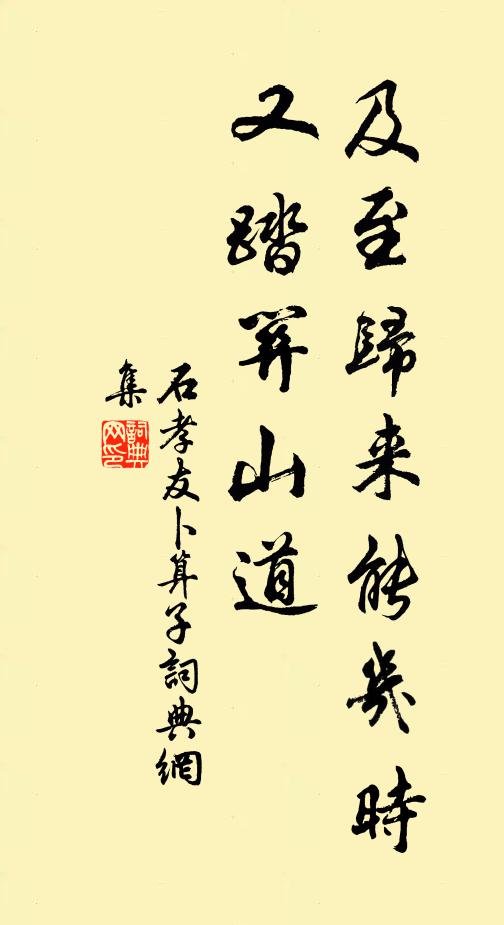 及至歸来能幾時
又踏關山道
石孝友卜算子詞典網
集
詞典
网印